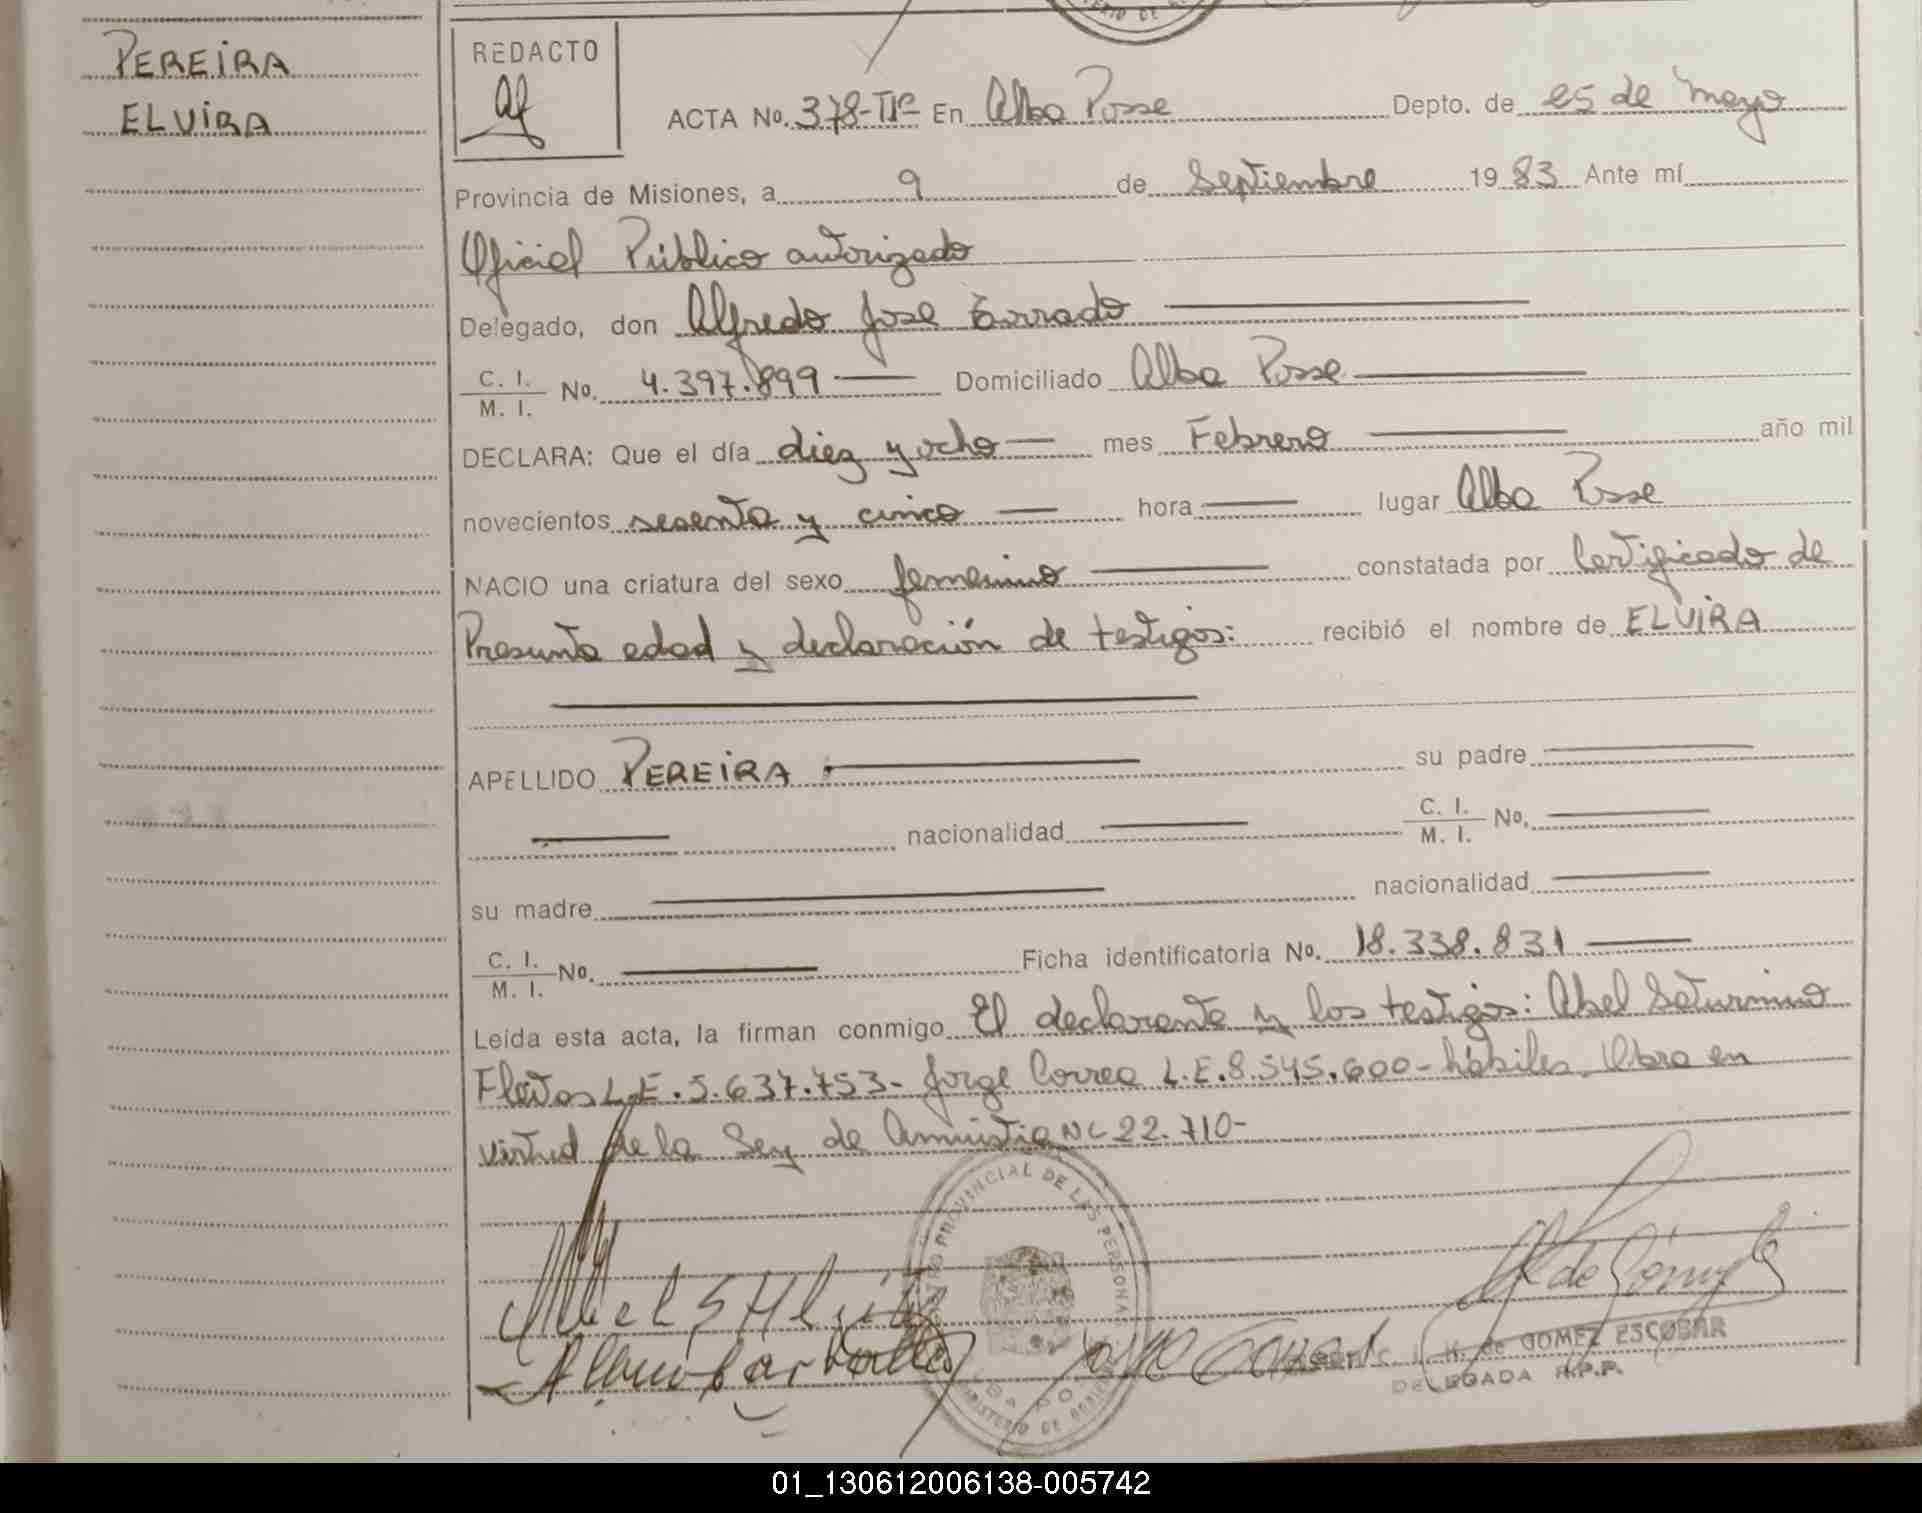 PEREIRA
ELVIRA
REDACTO
ACTA No. 378-Tº En Alba Posse Depto. de 25 de Mayo
Provincia de Misiones, a 9 de Septiembre 19 83 Ante mí
Oficial Público autorizado
Delegado, don Alfredo Jose
C. I. / M. I. No. 4.397.899 Domiciliado Alba Posse
DECLARA: Que el día diez y ocho mes Febrero año mil
novecientos sesenta y cinco hora lugar Alba Posse
NACIO una criatura del sexo femenino constatada por Certificado de
Presunta edad y declaración de testigos: recibió el nombre de ELVIRA
APELLIDO PEREIRA su padre
nacionalidad C. I. / M. I. No.
su madre nacionalidad
C. I. / M. I. No. Ficha identificatoria No. 18.338.831
Leída esta acta, la firman conmigo El declarante y los testigos: Abel Saturnino
Fleitas L.E. 5.637.753- Jorge Correa L.E. 8.545.600- hábiles. Obra en
virtud de la Ley de Amnistia Nº 22.710-
REGISTRO PROVINCIAL DE LAS PERSONAS
MINISTERIO DE GOBIERNO
H. de GOMEZ ESCOBAR
DELEGADA R.P.P.
01_130612006138-005742